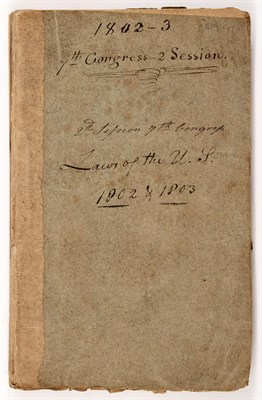 1802-3
7th Congress-2 Session.
2d Session 7th Congress
Laws of the U.S.
1802 & 1803